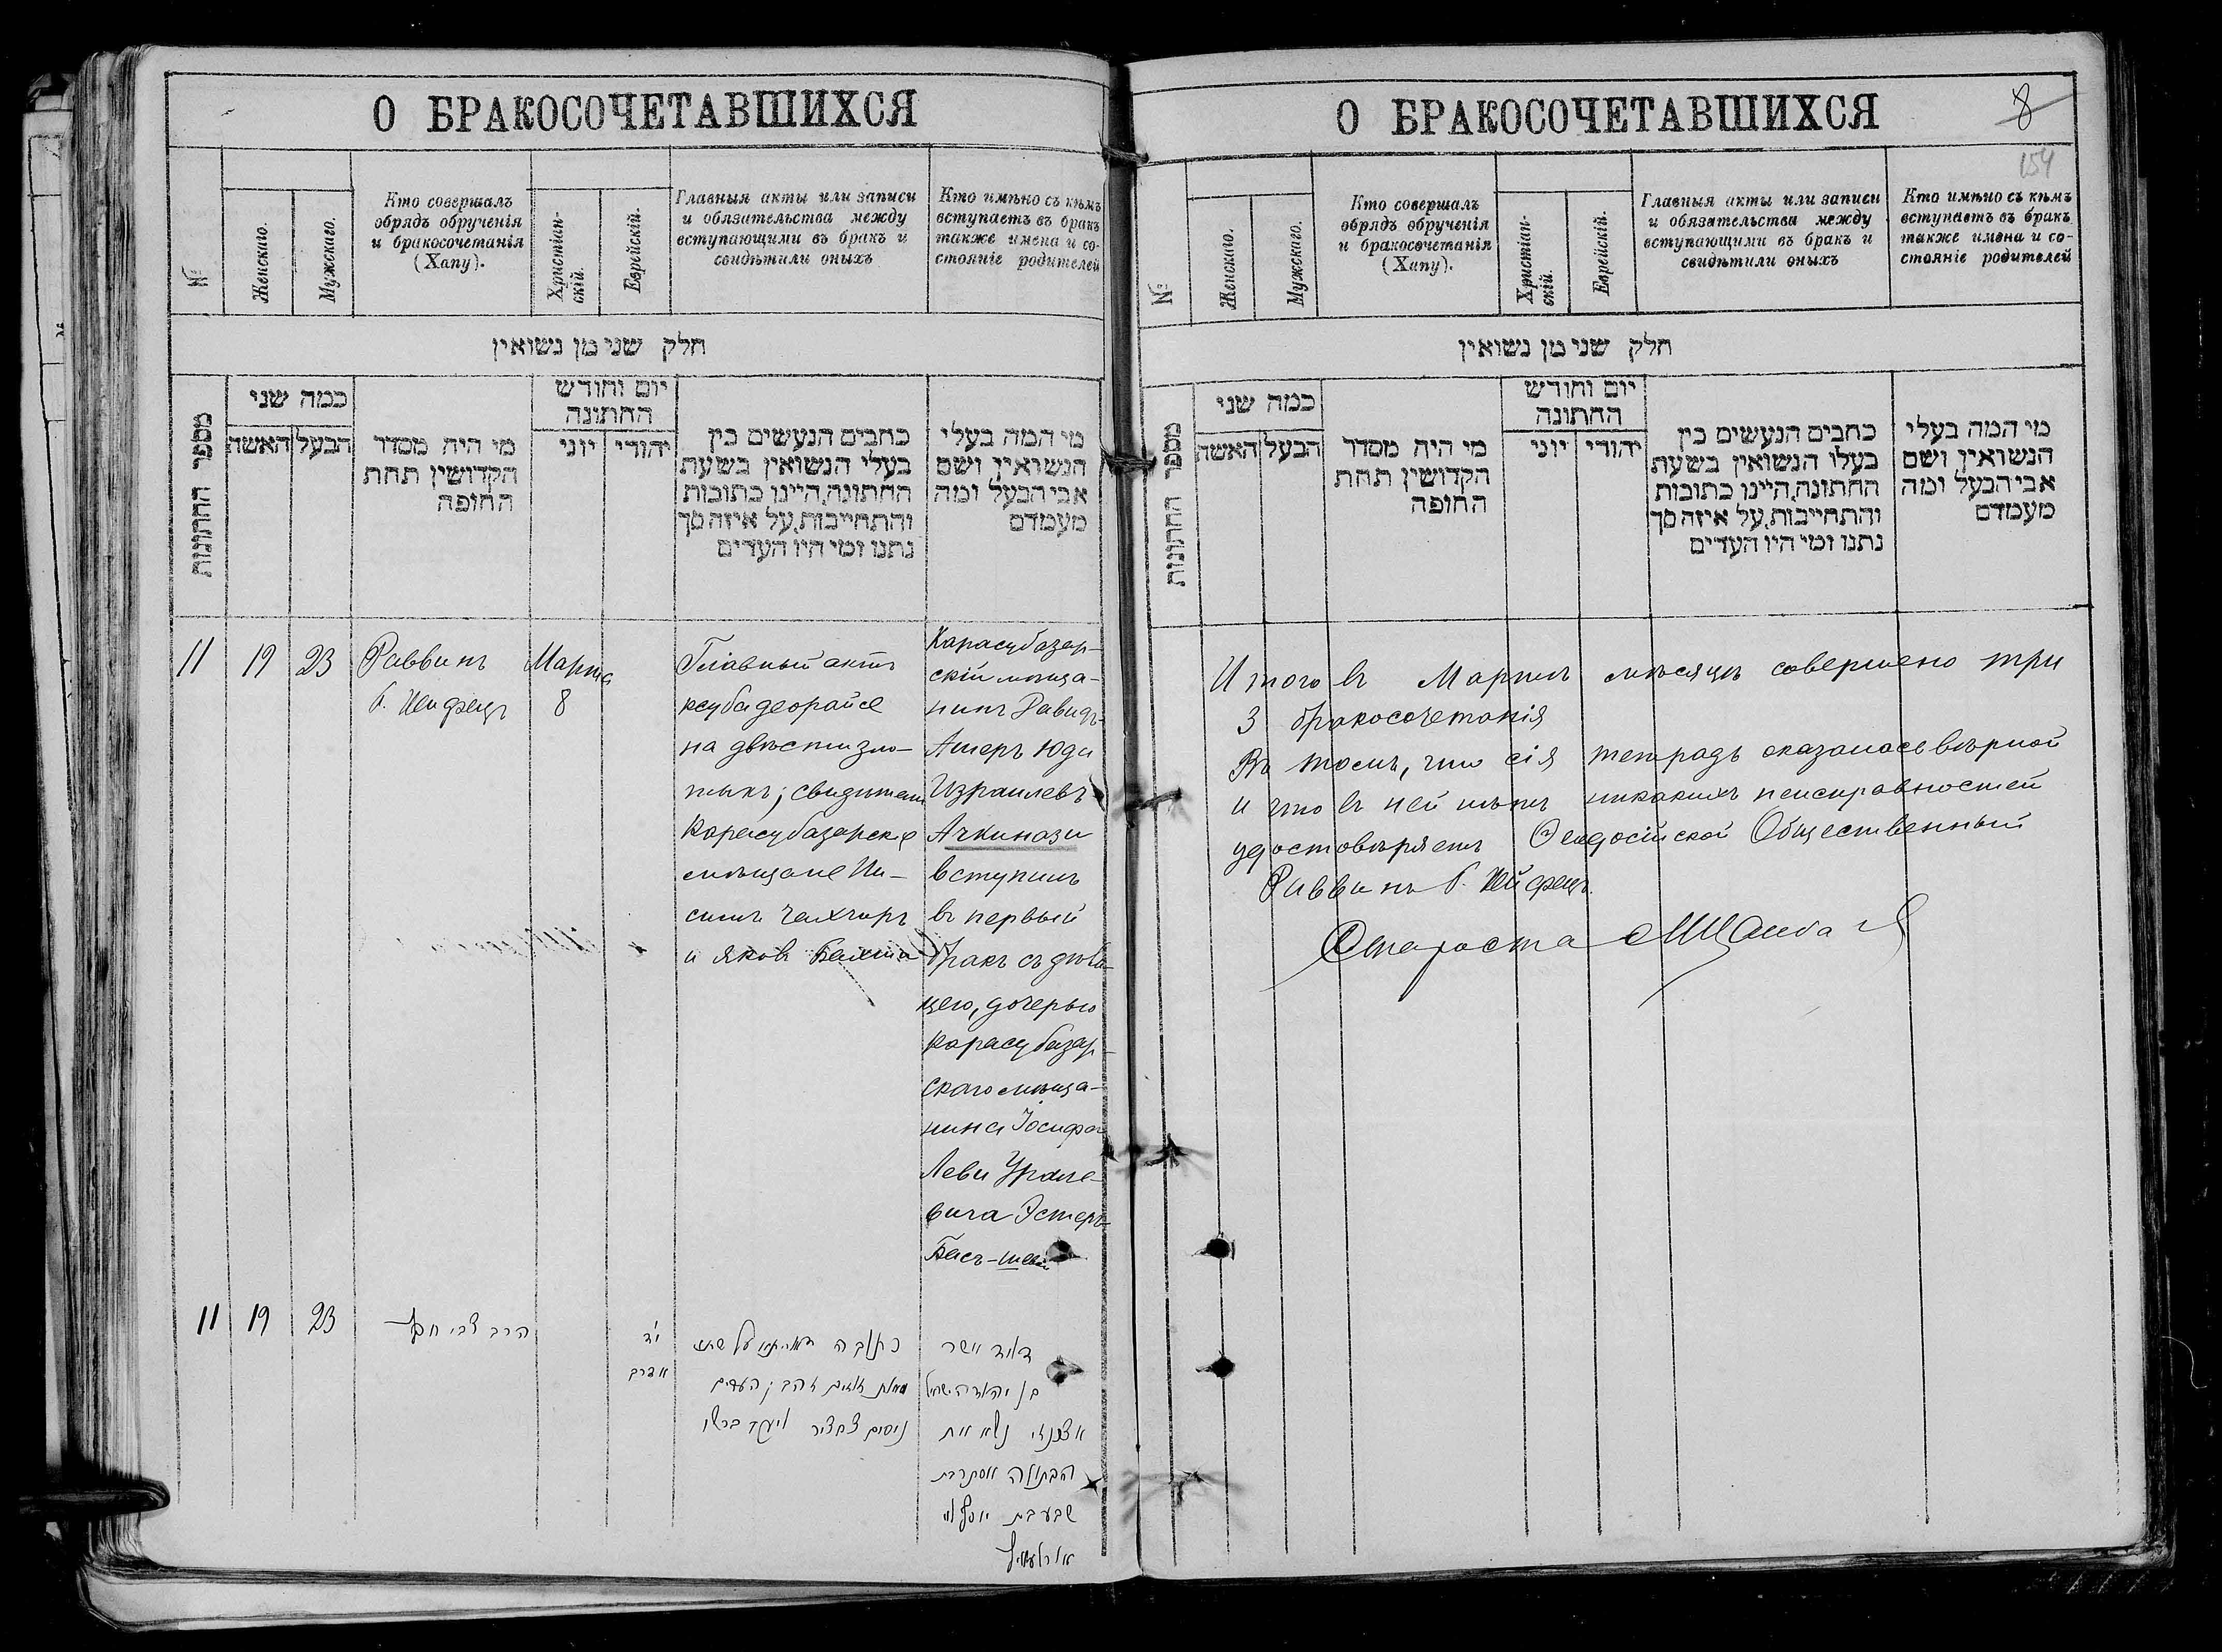 О БРАКОСОЧЕТАВШИХСЯ
№
Женскаго.
Мужскаго.
Кто совершалъ
обрядъ обрученія
и бракосочетанія
(Хапу).
Христіан-
скій.
Еврейскій.
Главныя акты или записи
и обязательства между
вступающими въ бракъ и
свидѣтили оныхъ
Кто имѣно съ кѣмъ
вступаетъ въ бракъ
также имена и со-
стояніе родителей
חלק שני מן נשואין
מספר החתונות
כמה שני
האשה
הבעל
מי היה מסדר
הקדושין תחת
החופה
יום וחודש
החתונה
יוני
יהודי
כתבים הנעשים בין
בעלי הנשואין בשעת
החתונה, היינו כתובות
והתחייבות, על איזה סך
נתנו ומי היו העדים
מי המה בעלי
הנשואין ושם
אבי הבעל ומה
מעמדם
11
19
23
Раввинъ
Б. Хейфецъ
Марта
8
Главный актъ
ксуба деорайсе
на двѣсти зло-
тыхъ; свидители
Карасубазарскіе
мѣщане Ни-
симъ
и Яковъ
Карасубазар-
скій мѣща-
нинъ Давидъ-
Ашеръ Юда
Израилевъ
Ачкинази
вступилъ
въ первый
бракъ съ дѣви-
цею, дочерью
Карасубазар-
скаго мѣща-
нина Іосифа
Леви Урале-
вича Эстеръ-
Басъ-Шева
11
19
23
הרב צבי חפץ
י"ד
אדר ב
כתובה דאורייתא על שתי
מאות זוזים זהב; העדים
נסים
דוד אשר
בן יהודה ישראל
אצכנזי נשא את
הבתולה אסתר בת
שבע בת יוסף לוי
О БРАКОСОЧЕТАВШИХСЯ
8
154
№
Женскаго.
Мужскаго.
Кто совершалъ
обрядъ обрученія
и бракосочетанія
(Хапу).
Христіан-
скій.
Еврейскій.
Главныя акты или записи
и обязательства между
вступающими въ бракъ и
свидѣтили оныхъ
Кто имѣно съ кѣмъ
вступаетъ въ бракъ
также имена и со-
стояніе родителей
חלק שני מן נשואין
מספר החתונות
כמה שני
האשה
הבעל
מי היה מסדר
הקדושין תחת
החופה
יום וחודש
החתונה
יוני
יהודי
כתבים הנעשים בין
בעלו הנשואין בשעת
החתונה, היינו כתובות
והתחייבות, על איזה סך
נתנו ומי היו העדים
מי המה בעלי
הנשואין ושם
אבי הבעל ומה
מעמדם
Итого въ Мартѣ мѣсяцѣ совершено три
3 бракосочетанія
Въ томъ, что сія тетрадь оказалась вѣрной
и что въ ней нѣтъ никакихъ неисправностей
удостовѣряетъ Ѳеодосійской Общественный
Раввинъ Б. Хейфецъ.
Староста